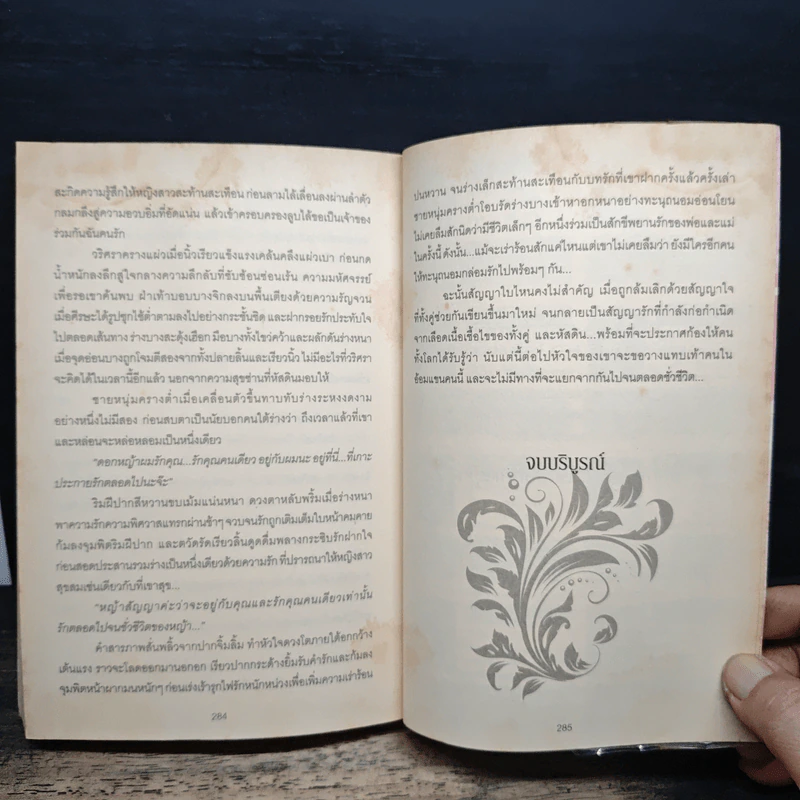 สะกิดความรู้สึกให้หญิงสาวสะท้านสะเทือน ก่อนลามไล้เลื่อนลงผ่านลำตัว
กลมกลึงสู่ความอวบอิ่มที่อัดแน่น แล้วเข้าครอบครองลูบไล้ขอเป็นเจ้าของ
ร่วมกันฉันคนรัก
วริศราครางแผ่วเมื่อนิ้วเรียวแข็งแรงเคล้นคลึงแผ่วเบา ก่อนกด
น้ำหนักลงลึกสู่ใจกลางความลึกลับที่ซับซ้อนซ่อนเร้น ความมหัศจรรย์
เพื่อรอเขาค้นพบ ฝ่าเท้าบอบบางจิกลงบนพื้นเตียงด้วยความรัญจวน
เมื่อศีรษะได้รูปซุกไซ้ต่ำตามลงไปอย่างกระชั้นชิด และฝากรอยรักประทับใจ
ไปตลอดเส้นทาง ร่างบางสะดุ้งเฮือก มือบางทั้งไขว่คว้าและผลักดันร่างหนา
เมื่อจุดอ่อนบางถูกโจมตีสองจากทั้งปลายลิ้นและเรียวนิ้ว ไม่มีอะไรที่วริศรา
จะคิดได้ในเวลานี้อีกแล้ว นอกจากความสุขซ่านที่หัสดินมอบให้
ชายหนุ่มครางต่ำเมื่อเคลื่อนตัวขึ้นทาบทับร่างระหงงดงาม
อย่างหนึ่งไม่มีสอง ก่อนสบตาเป็นนัยบอกคนใต้ร่างว่า ถึงเวลาแล้วที่เขา
และหล่อนจะหล่อหลอมเป็นหนึ่งเดียว
“ดอกหญ้าผมรักคุณ...รักคุณคนเดียว อยู่กับผมนะ อยู่ที่นี่...ที่เกาะ
ประกายรักตลอดไปนะจ๊ะ”
ริมฝีปากสีหวานขบเม้มแน่นหนา ดวงตาหลับพริ้มเมื่อร่างหนา
พาความรักความพิศวาสแทรกผ่านช้าๆ จวบจนรักถูกเติมเต็มใบหน้าคมคาย
ก้มลงจุมพิตริมฝีปาก และตวัดรัดเรียวลิ้นดูดดื่มพลางกระซิบรักฝากใจ
ก่อนสอดประสานรวมร่างเป็นหนึ่งเดียวด้วยความรัก ที่ปรารถนาให้หญิงสาว
สุขสมเช่นเดียวกับที่เขาสุข...
“หญ้าสัญญาค่ะว่าจะอยู่กับคุณและรักคุณคนเดียวเท่านั้น
รักตลอดไปจนชั่วชีวิตของหญ้า...”
คำสารภาพสั่นพลิ้วจากปากจิ้มลิ้ม ทำหัวใจดวงโตภายใต้อกกว้าง
เต้นแรง ราวจะโลดออกมานอกอก เรียวปากกระด้างยิ้มรับคำรักและก้มลง
จุมพิตหน้าผากมนหนักๆ ก่อนเร่งเร้ารุกไฟรักหนักหน่วงเพื่อเพิ่มความเร่าร้อน
284
ปนหวาน จนร่างเล็กสะท้านสะเทือนกับบทรักที่เขาฝากครั้งแล้วครั้งเล่า
ชายหนุ่มครางต่ำโอบรัดร่างบางเข้าหาอกหนาอย่างทะนุถนอมอ่อนโยน
ไม่เคยลืมสักนิดว่ามีชีวิตเล็กๆ อีกหนึ่งร่วมเป็นสักขีพยานรักของพ่อและแม่
ในครั้งนี้ ดังนั้น...แม้จะเร่าร้อนสักแค่ไหนแต่เขาไม่เคยลืมว่า ยังมีใครอีกคน
ให้ทะนุถนอมกล่อมรักไปพร้อมๆ กัน...
ฉะนั้นสัญญาใบไหนคงไม่สำคัญ เมื่อถูกล้มเลิกด้วยสัญญาใจ
ที่ทั้งคู่ช่วยกันเขียนขึ้นมาใหม่ จนกลายเป็นสัญญารักที่กำลังก่อกำเนิด
จากเลือดเนื้อเชื้อไขของทั้งคู่ และหัสดิน...พร้อมที่จะประกาศก้องให้คน
ทั้งโลกได้รับรู้ว่า นับแต่นี้ต่อไปหัวใจของเขาจะขอวางแทบเท้าคนใน
อ้อมแขนคนนี้ และจะไม่มีทางที่จะแยกจากกันไปจนตลอดชั่วชีวิต...
จบบริบูรณ์
285